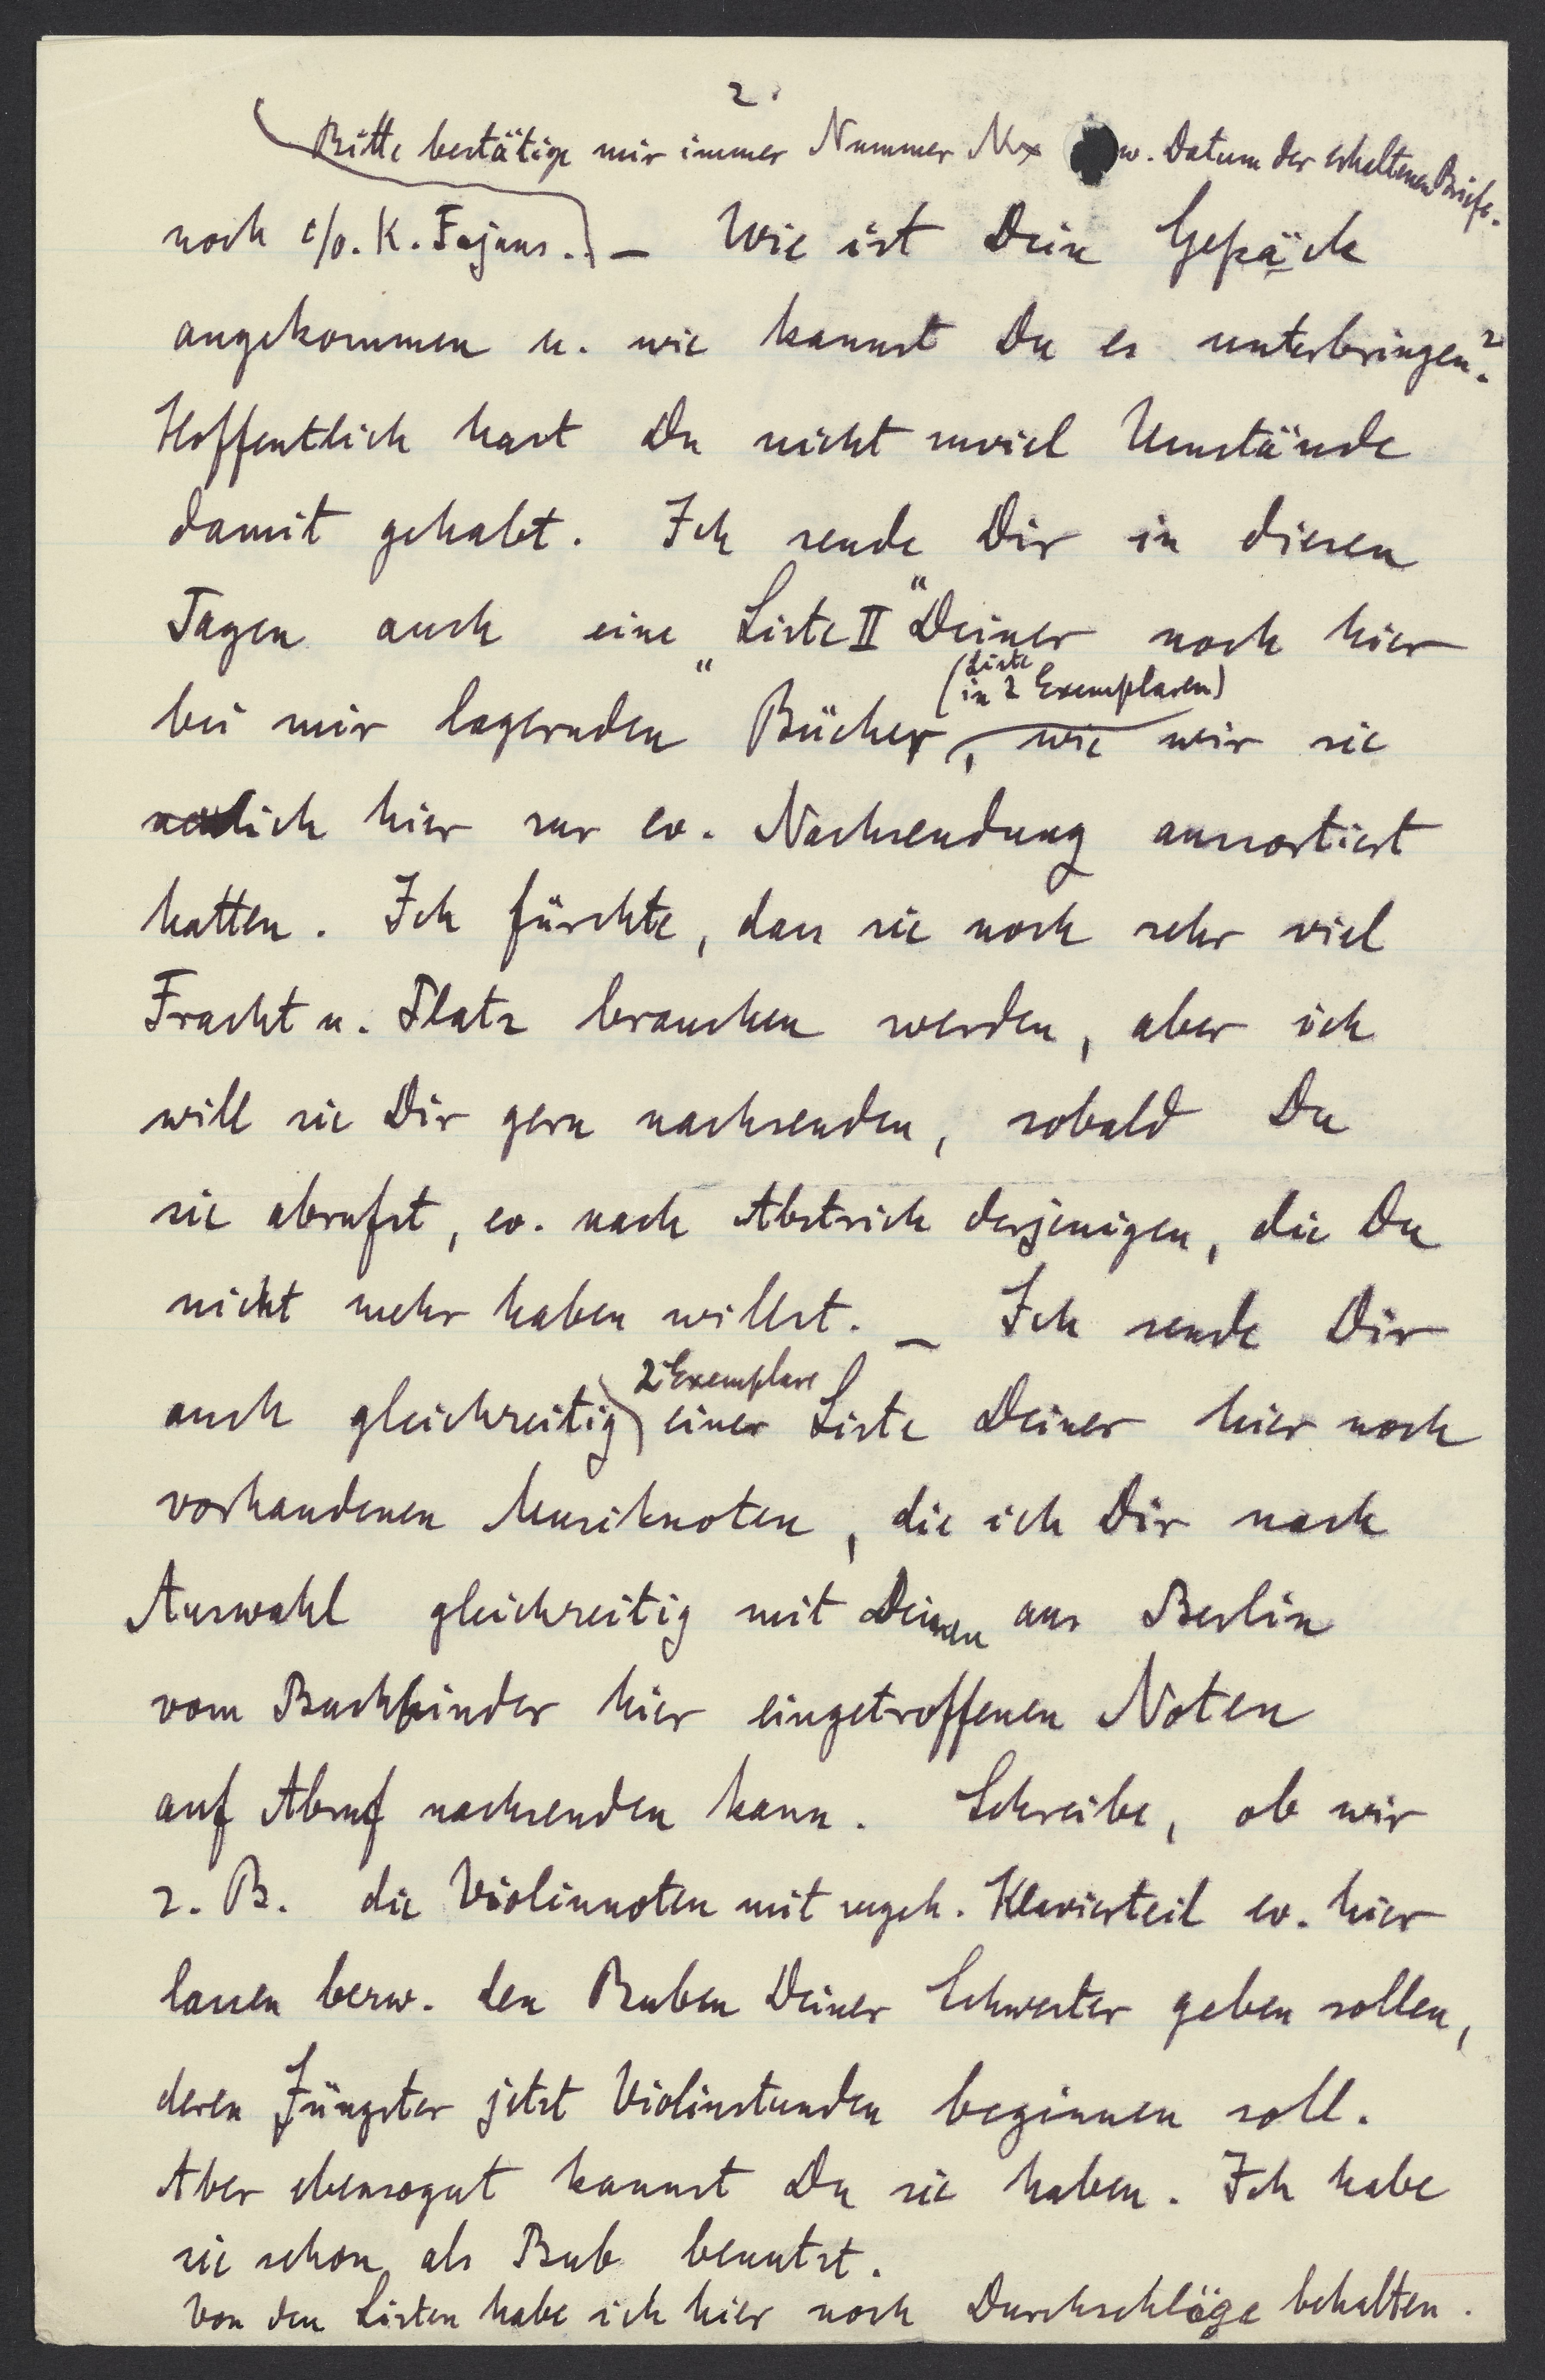 2.
Bitte bestätige mir immer Nummer w. Datum der erhaltenen Briefe.
noch c/o. K. Fajans.) – Wie ist Dein Gepäck
angekommen u. wie kannst Du es unterbringen?
Hoffentlich hast Du nicht zuviel Umstände
damit gehabt. Ich sende Dir in diesen
Tagen auch eine "Liste II" Deiner noch hier
(Liste
in 2 Exemplaren)
bei mir lagernden Bücher, wie wir sie
neulich hier zur ev. Nachsendung aussortiert
hatten. Ich fürchte, dass sie noch sehr viel
Fracht u. Platz brauchen werden, aber ich
will sie Dir gern nachsenden, sobald Du
sie abrufst, ev. nach Abstrich derjenigen, die Du
nicht mehr haben willst. – Ich sende Dir
2 Exemplare
auch gleichzeitig einer Liste Deiner hier noch
vorhandenen Musiknoten, die ich Dir nach
Auswahl gleichzeitig mit Deinen aus Berlin
vom Buchbinder hier eingetroffenen Noten
auf Abruf nachsenden kann. Schreibe, ob wir
z. B. die Violinnoten mit zugeh. Klavierteil ev. hier
lassen bezw. den Buben Deiner Schwester geben sollen,
deren Jüngster jetzt Violinstunden beginnen soll.
Aber ebensogut kannst Du sie haben. Ich habe
sie schon als Bub benutzt.
Von den Listen habe ich hier noch Durchschläge behalten.